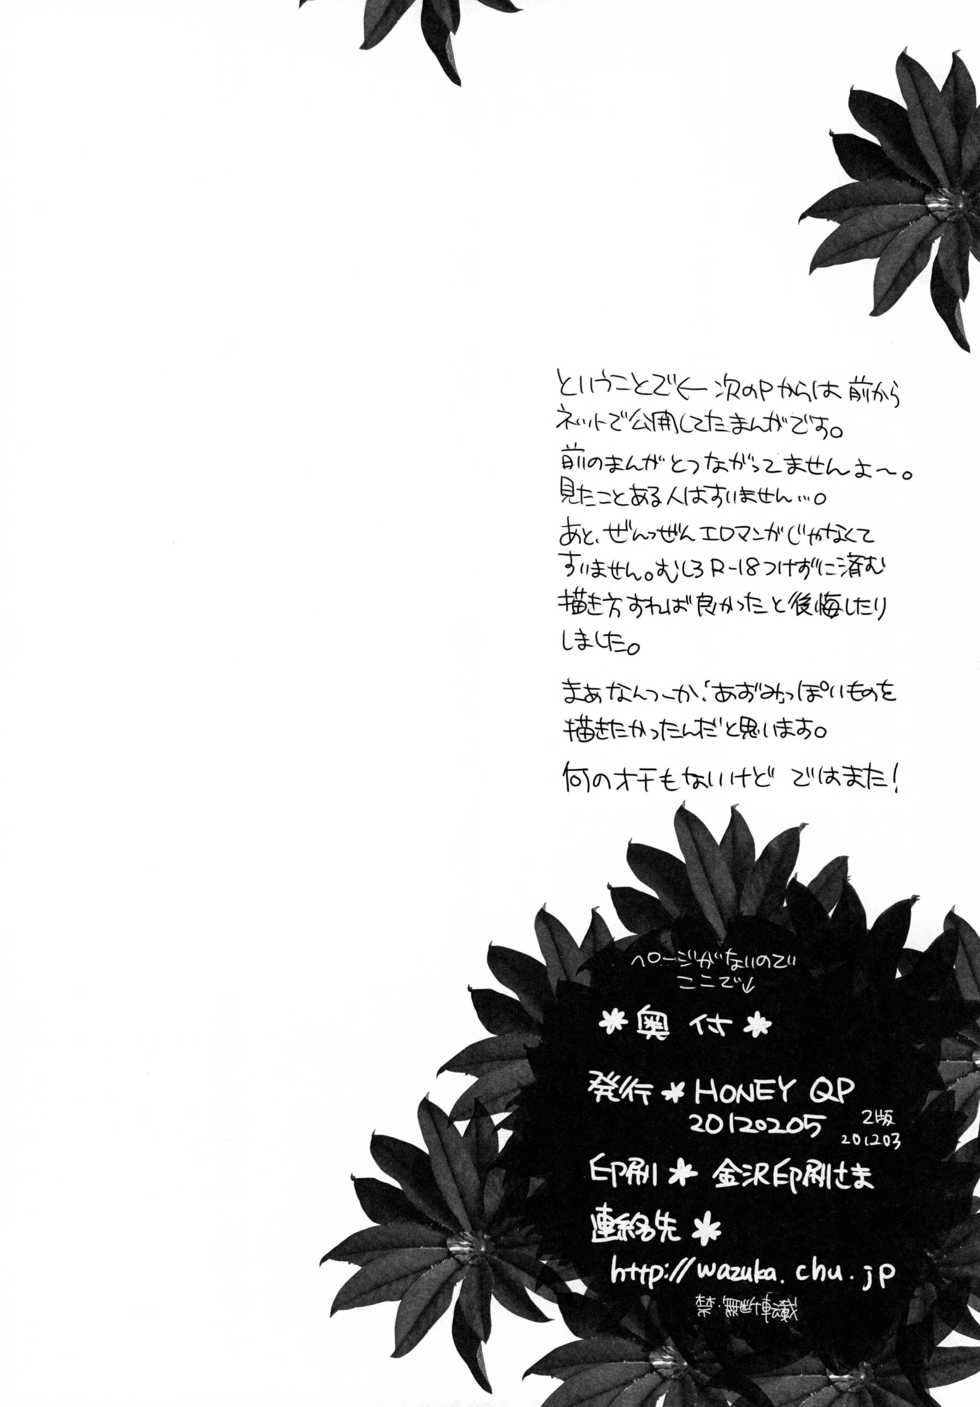 ということで← 次のPからは前から
ネットで公開してたまんがです。
前のまんがとつながってませんよ〜。
見たことある人はすいません…。
あと、ぜんっぜんエロマンガじゃなくて
すいません。むしろR-18つけずに済む
描き方すれば良かったと後悔したり
しました。
まぁなんつーか、「あずみっぽいものを
描きたかったんだと思います。
何のオチもないけど ではまた!
ページがないので
ここで↓
*奥付*
発行*HONEY QP
20120205 2版
201203
印刷*金沢印刷さま
連絡先*
http://wazuka.chu.jp
禁・無断転載